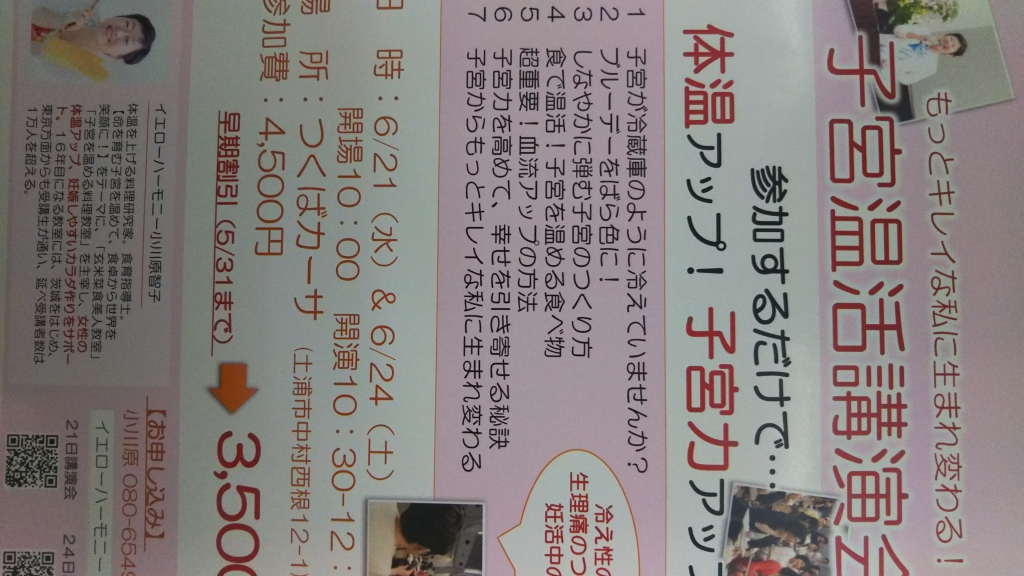 もっとキレイな私に生まれ変わる！
子宮温活講演会
参加するだけで…
体温アップ！子宮力アッ
1 子宮が冷蔵庫のように冷えていませんか？
2 ブルーデーをばら色に！
3 しなやかに弾む子宮のつくり方
4 食で温活！子宮を温める食べ物
5 超重要！血流アップの方法
6 子宮力を高めて、幸せを引き寄せる秘訣
7 子宮からもっとキレイな私に生まれ変わる
冷え性の
生理痛のつ
妊活中の
日 時：6/21（水）＆6/24（土）
開場10：00 開演10：30-12：
場 所：つくばカーサ（土浦市中村西根12-1）
参加費：4,500円
早期割引（5/31まで） 3,500
イエローハーモニー小川原智子
体温を上げる料理研究家。食育指導士。
【命を育む子宮を温めて、食卓から世界を
笑顔に！】をテーマに、「玄米菜食美人教室」
「子宮を温める料理教室」を主宰し、女性の
体温アップ、妊娠しやすいカラダ作りをサポー
ト。16年目になる教室には、茨城をはじめ、
東京方面からも受講生が通い、延べ受講者数は
1万人を超える。
【お申し込み】
小川原 080-6549
イエローハーモニ
21日講演会 24日